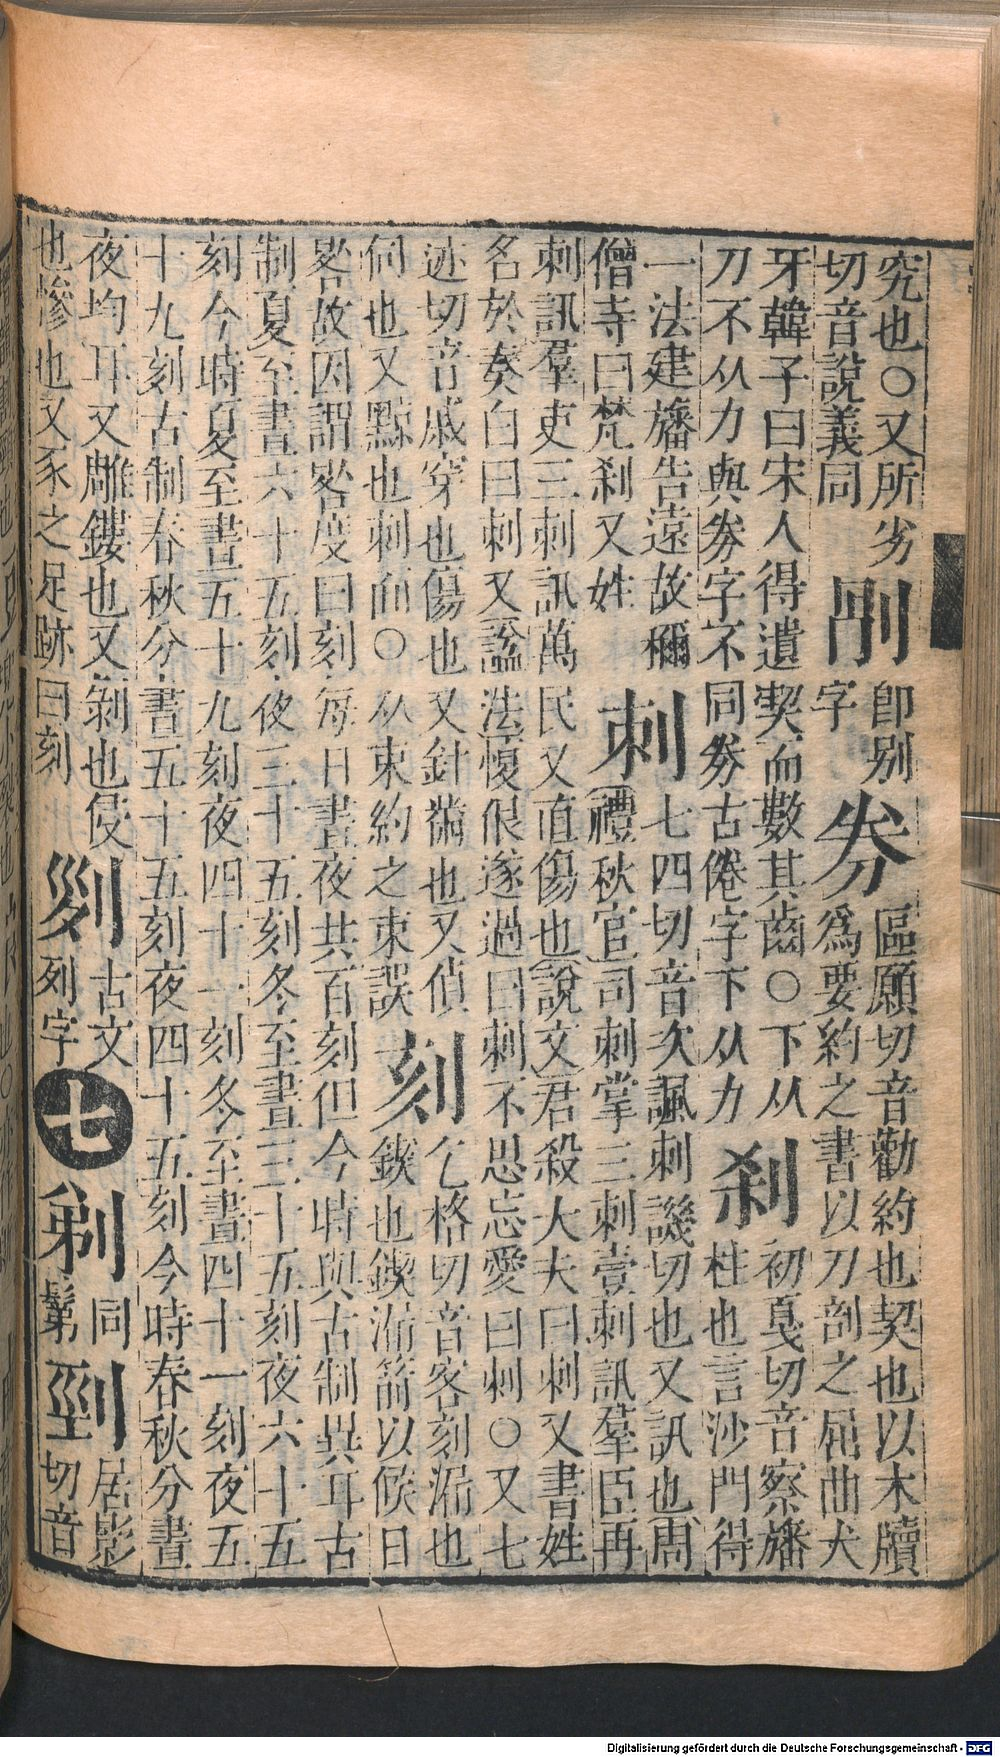 究也○又所劣　刖　卽别　券　區願切音勸約也契也以木牘
切音說義同　字　爲要約之書以刀剖之屈曲犬
牙韓子曰宋人得遺契而數其齒○下从　刹　初戛切音察旛
刀不从力與券字不同劵古倦字下从力　柱也言沙門得
一法建旛告遠故稱　刺　七四切音次諷刺譏切也又訊也周
僧寺曰梵刹又姓　禮秋官司刺掌三刺壹刺訊羣臣再
刺訊羣吏三刺訊萬民又直傷也說文君殺大夫曰刺又書姓
名於奏白曰刺又諡法愎佷遂過曰刺不思忘愛曰刺○又七
迹切音戚穿也傷也又針黹也又偵　刻　乞格切音客刻漏也
伺也又黥也刺面○从朿約之束誤　鏤也鍥漏箭以候日
晷故因謂晷度曰刻每日晝夜共百刻但今時與古制異耳古
制夏至晝六十五刻夜三十五刻冬至晝三十五刻夜六十五
刻今時夏至晝五十九刻夜四十一刻冬至晝四十一刻夜五
十九刻古制春秋分晝五十五刻夜四十五刻今時春秋分晝
夜均耳又雕鏤也又剝也侵　古文　七　剃　同　剄　居影
也慘也又豕之足跡曰刻　列字　鬀　切音
Digitalisierung gefördert durch die Deutsche Forschungsgemeinschaft - DFG